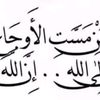 مست الأوجا
إلى الله .. إن الله